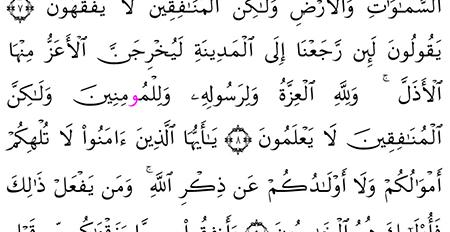 ٱلسَّمَٰوَٰتِ وَٱلْأَرْضِ وَلَٰكِنَّ ٱلْمُنَٰفِقِينَ لَا يَفْقَهُونَ ﴿٧﴾
يَقُولُونَ لَئِن رَّجَعْنَا إِلَى ٱلْمَدِينَةِ لَيُخْرِجَنَّ ٱلْأَعَزُّ مِنْهَا
ٱلْأَذَلَّ ۚ وَلِلَّهِ ٱلْعِزَّةُ وَلِرَسُولِهِۦ وَلِلْمُومِنِينَ وَلَٰكِنَّ
ٱلْمُنَٰفِقِينَ لَا يَعْلَمُونَ ﴿٨﴾ يَٰأَيُّهَا ٱلَّذِينَ ءَامَنُوا۟ لَا تُلْهِكُمْ
أَمْوَٰلُكُمْ وَلَا أَوْلَٰدُكُمْ عَن ذِكْرِ ٱللَّهِ ۚ وَمَن يَفْعَلْ ذَٰلِكَ